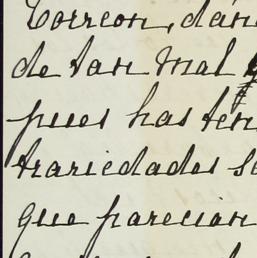 Torreon, dán
de tan mal
pues has ten
trariedades se
que parecian